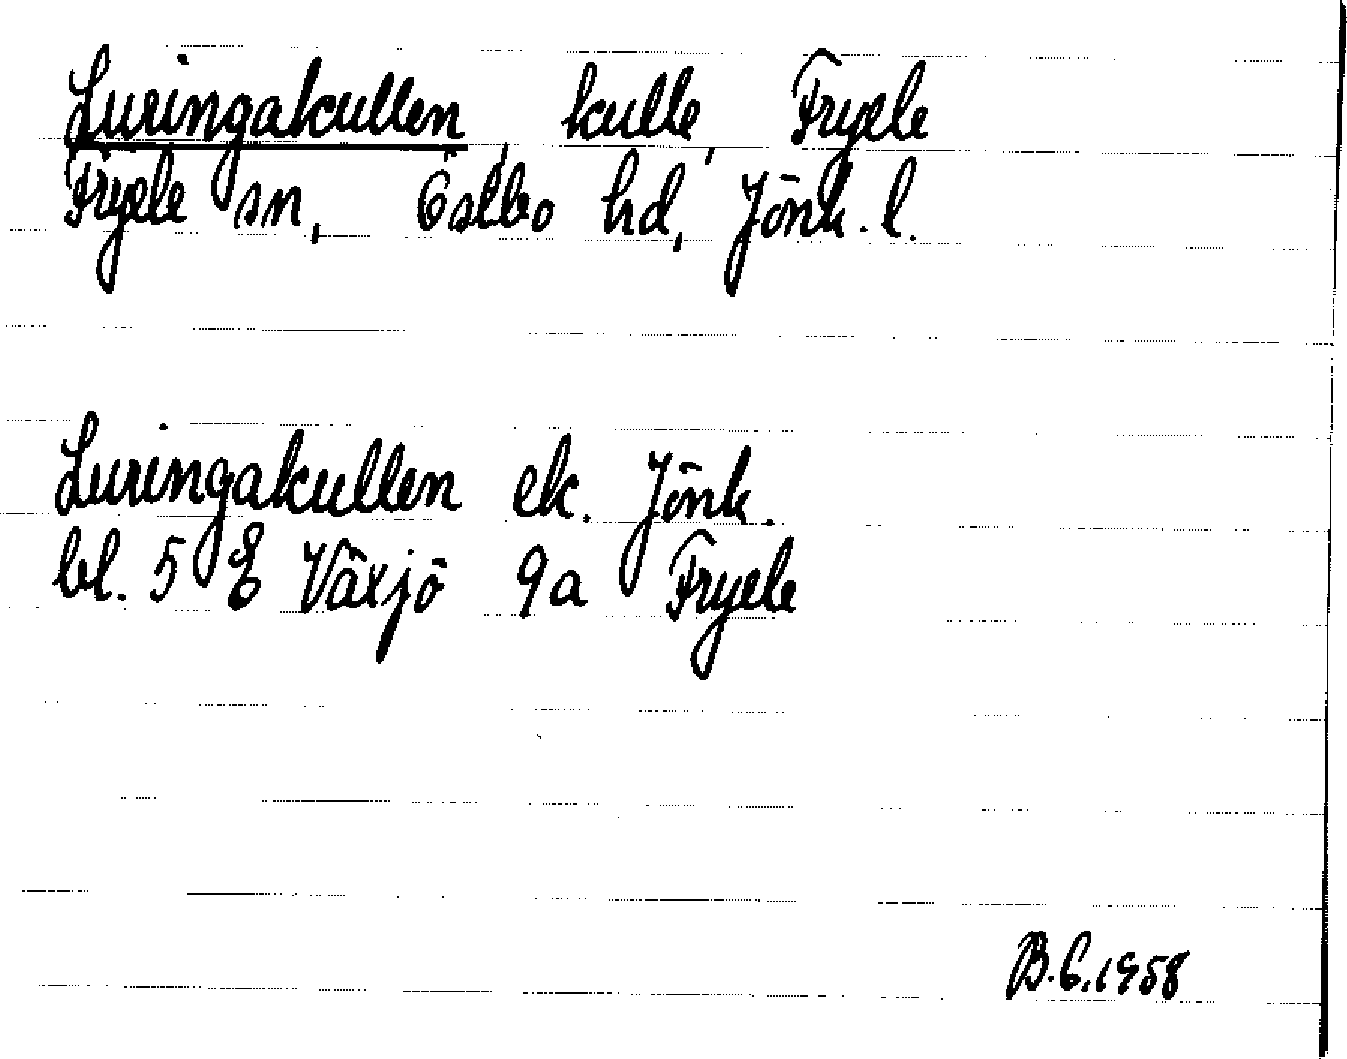 Luringakullen, kulle, Fryele
Fryele sn, Östbo hd, Jönk. l.
Luringakullen ek. Jönk.
bl. 5 E Växjö 9a Fryele
B.E.1958